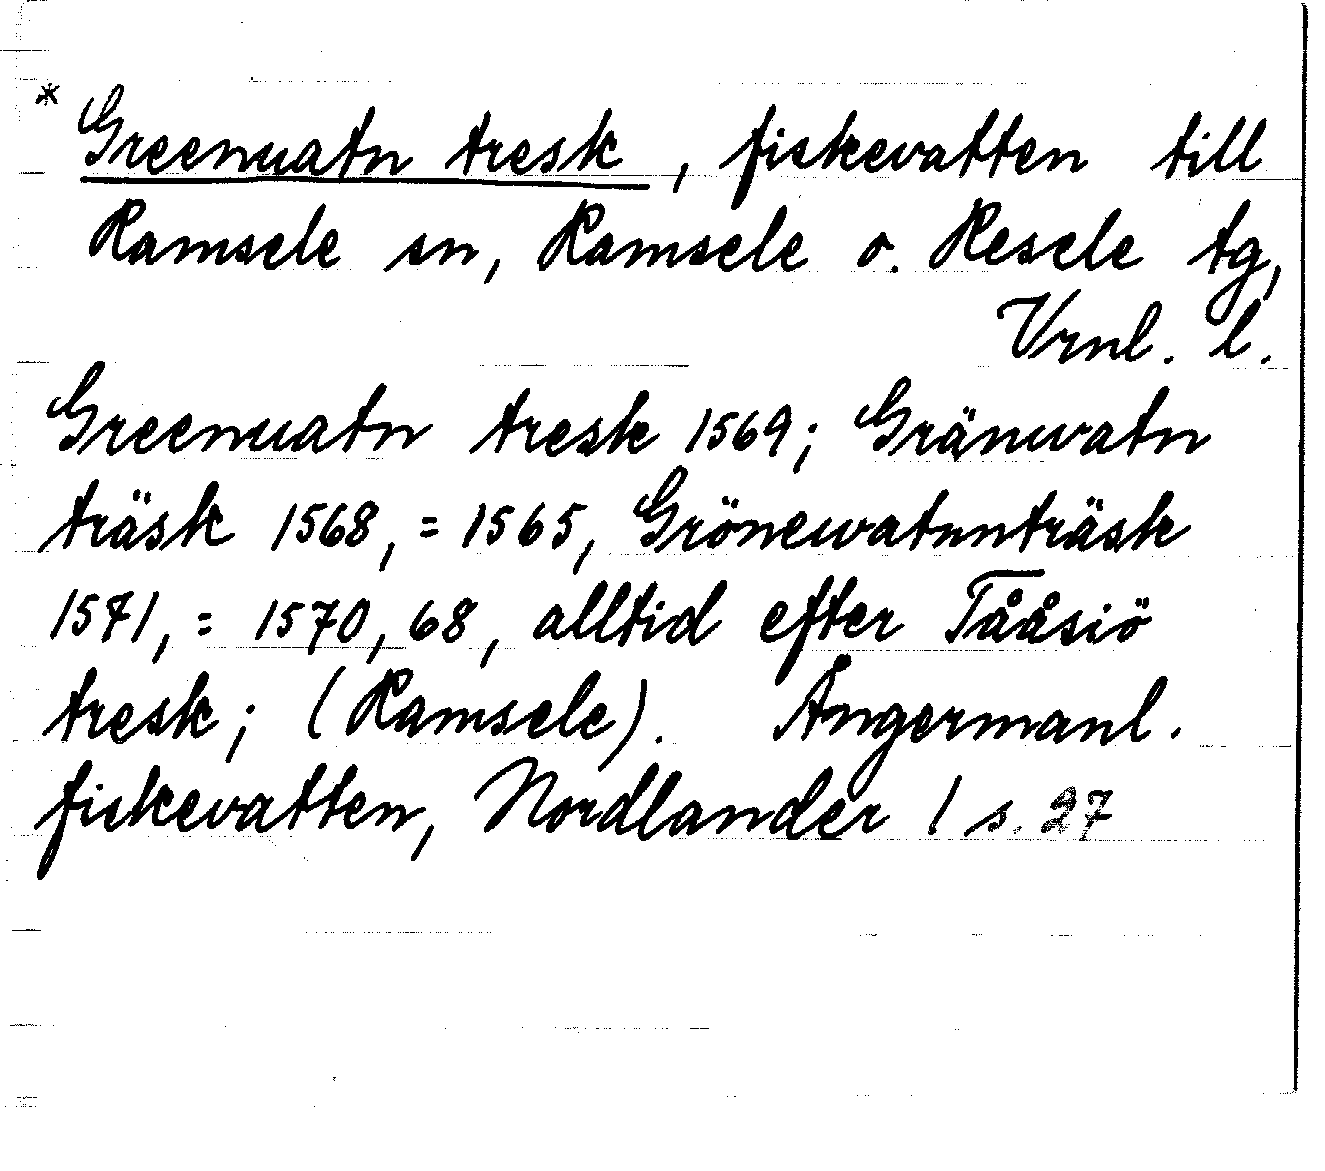 * Greenuatn tresk, fiskevatten till
Ramsele sn, Ramsele o. Resele tg,
Vrnl. l.
Greenuatn tresk 1569; Gränwatn
träsk 1568, = 1565, Grönewatnnträsk
1571, = 1570, 68, alltid efter Tååsiö
tresk; (Ramsele). Ångermanl.
fiskevatten, Nordlander 1 s. 27